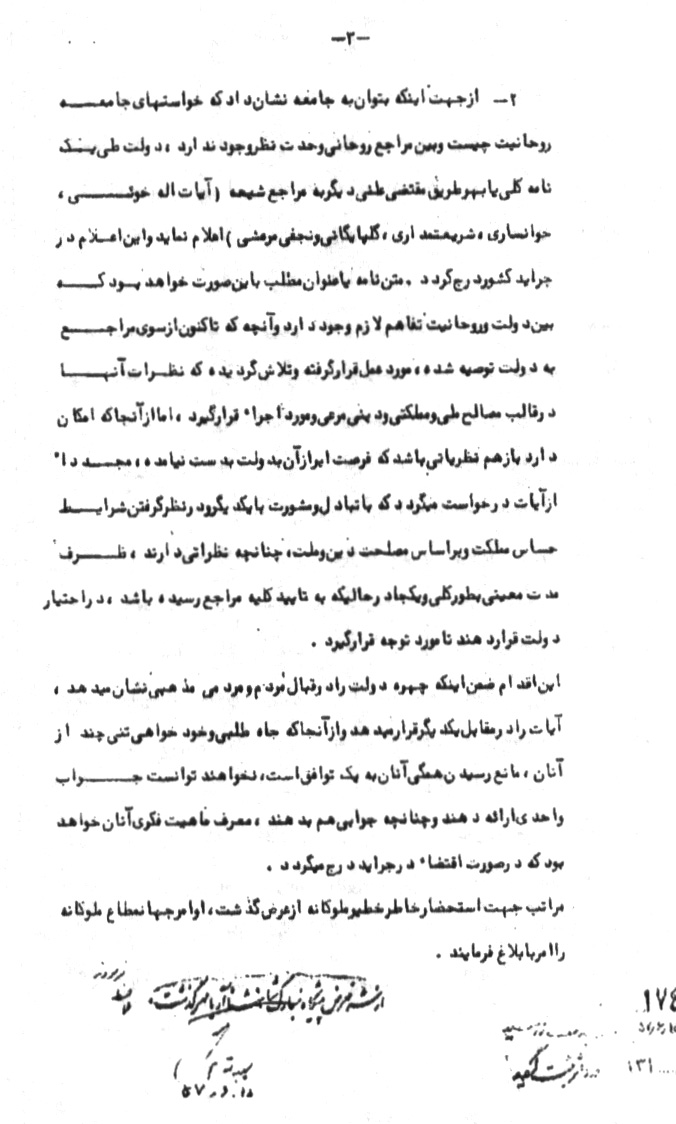 -۳-
۲- ازجهت اینکه بتوان به جامعه نشان داد که خواستهای جامعه
روحانیت چیست وبین مراجع روحانی وحدت نظر وجود ندارد ، دولت طی یک
نامه کلی یا بهر طریق مقتضی طئی دیگر به مراجع شیعه (آیات اله خوئی ،
خوانساری ، شریعتمداری ، گلپایگانی ونجفی مرعشی) اعلام نماید واین اعلام در
جراید کشور درج گردد . متن نامه یا عنوان مطلب باین صورت خواهد بود که
بین دولت وروحانیت تفاهم لازم وجود دارد وآنچه که تاکنون از سوی مراجع
به دولت توصیه شده ، مورد عمل قرار گرفته وتلاش گردیده که نظرات آنها
در قالب مصالح ملی ومملکتی ودینی مرعی ومورد اجراء قرارگیرد ، اما از آنجا که امکان
دارد بازهم نظریاتی باشد که فرصت ابراز آن بدولت بدست نیامده ، مجدداً
از آیات درخواست میگردد که با تبادل ومشورت با یکدیگر ودر نظر گرفتن شرایط
حساس مملکت وبراساس مصلحت دین وملت ، چنانچه نظراتی دارند ، ظرف
مدت معینی بطور کلی ویکجا درحالیکه به تایید کلیه مراجع رسیده باشد ، در اختیار
دولت قرار دهند تا مورد توجه قرارگیرد .
این اقدام ضمن اینکه چهره دولت را در قبال مردم ومردمی مذهبی نشان میدهد ،
آیات را در مقابل یکدیگر قرار میدهد واز آنجا که جاه طلبی وخود خواهی تنی چند از
آنان ، مانع رسیدن همگی آنان به یک توافق است ، نخواهند توانست جواب
واحدی ارائه دهند وچنانچه جوابی هم بدهند ، معرف ماهیت فکری آنان خواهد
بود که در صورت اقتضاء در جراید درج میگردد .
مراتب جهت استحضار خاطر خطیر ملوکانه از عرض گذشت ، اوامر جهانمطاع ملوکانه
را امر با بلاغ فرمایند .
۱۷٤
۱۳۱
ثبت کنید
۵۷